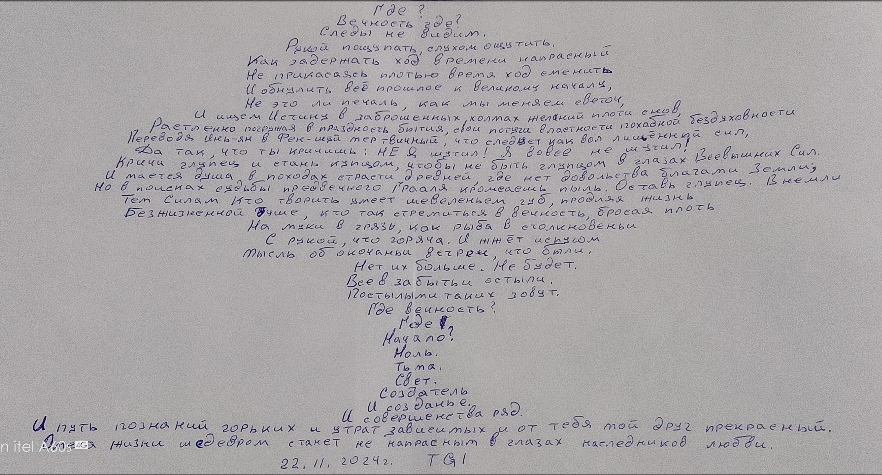 Где ?
Вечность где?
Следы не видим.
Рукой пощупать, слухом ощутить.
Как задержать ход времени напрасный
Не прикасаясь плотью время ход сменить
И обнулить всё прошлое к великому началу,
Не это ли печаль, как мы меняем светоч,
И ищем Истину в заброшенных холмах желаний плоти снов,
Растленно погружая в праздность бытия, свои потуги властности похабной бездуховности
Переводя Инь-ян в Фен-шуй твой, что следует как вол лишённый сил,
Да так, что ты кричишь: НЕ Я шутил! Я вовсе не шутил!
Кричи глупец и стань купцом, чтобы не быть глупцом в глазах Всевышних Сил.
И мается душа, в походах страсти древней где нет довольства благами Земли;
Но в поисках судьбы предвечного Грааля кромсаешь пыль. Оставь глупец. Внемли
Тем Силам кто творить умеет шевеленьем губ, продляя жизнь
Безжизненной душе, кто так стремиться в вечность, бросая плоть
На муки в грязь, как рыба в столкновеньи
С рукой, что горяча. И жжёт испугом
Мысль об окочаньи встреч, что были.
Нет их больше. Не будет.
Все в забытьи остыли.
Постылыми таких зовут.
Где вечность?
Где
Начало?
Ноль.
Тьма.
Свет.
Создатель
И созданье.
И совершенства ряд.
И путь познаний горьких и утрат зависимых и от тебя мой друг прекрасный.
жизни шедевром станет не напрасным в глазах наследников любви.
22.11.2024г. TGI
n itel A60s